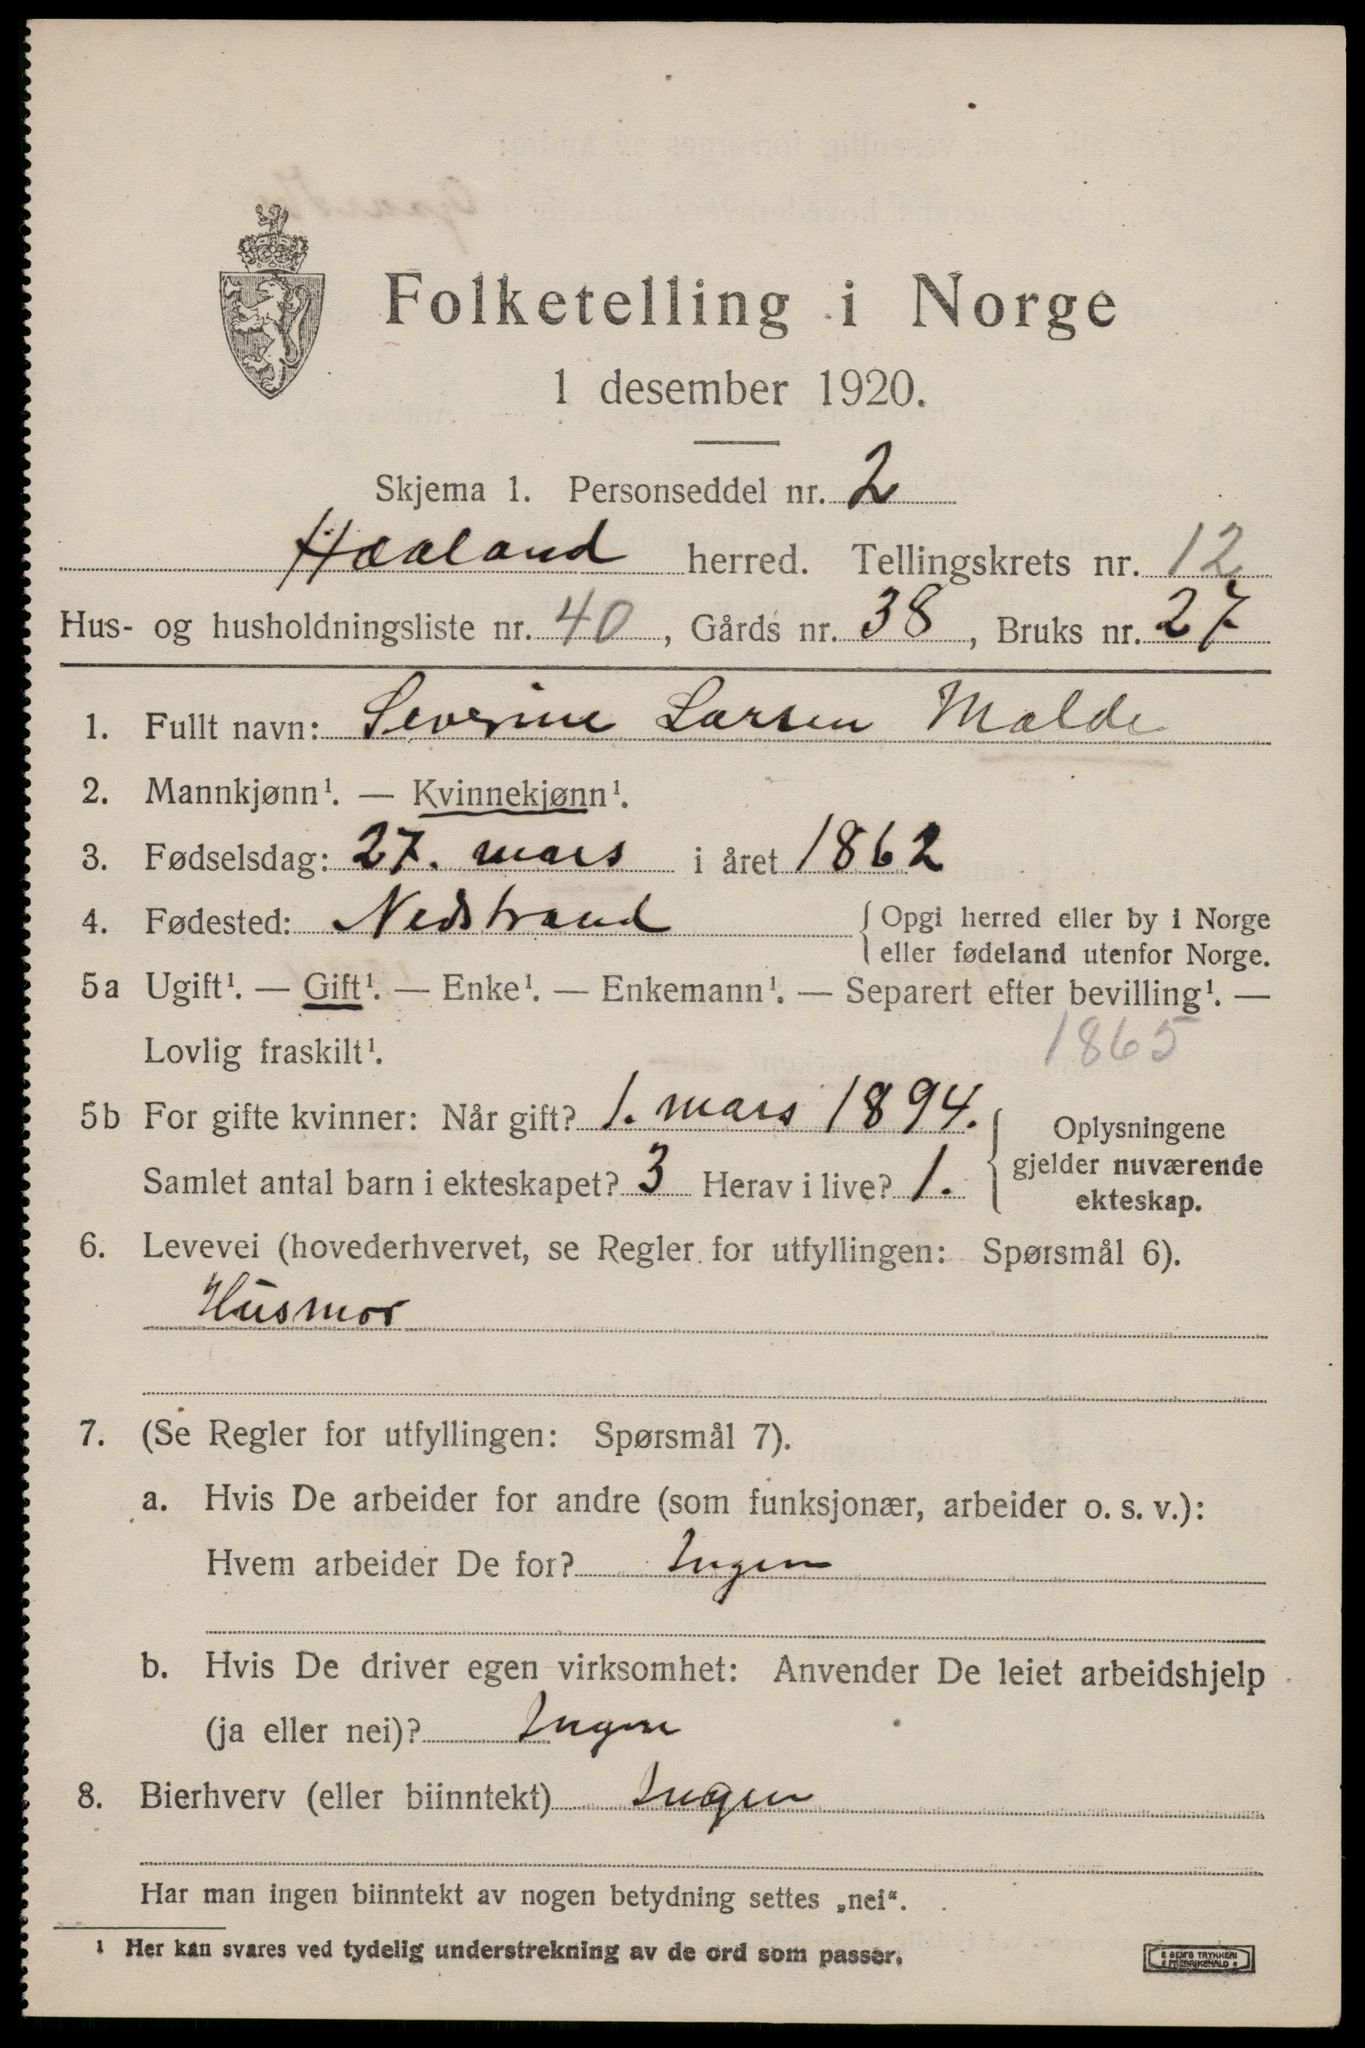 Folketelling i Norge
1 desember 1920.
Skjema 1. Personseddel nr. 2
Haaland herred. Tellingskrets nr. 12
Hus- og husholdningsliste nr. 40, Gårds nr. 38, Bruks nr. 27
1. Fullt navn: Severine Larsen Malde
2. Mannkjønn¹. — Kvinnekjønn¹.
3. Fødselsdag: 27. mars i året 1862
4. Fødested: Nedstrand { Opgi herred eller by i Norge
eller fødeland utenfor Norge.
5a Ugift¹. — Gift¹. — Enke¹. — Enkemann¹. — Separert efter bevilling¹. —
Lovlig fraskilt¹. 1865
5b For gifte kvinner: Når gift? 1. mars 1894. { Oplysningene
gjelder nuværende
ekteskap.
Samlet antal barn i ekteskapet? 3 Herav i live? 1.
6. Levevei (hovederhvervet, se Regler for utfyllingen: Spørsmål 6).
Husmor
7. (Se Regler for utfyllingen: Spørsmål 7).
a. Hvis De arbeider for andre (som funksjonær, arbeider o. s. v.):
Hvem arbeider De for? Ingen
b. Hvis De driver egen virksomhet: Anvender De leiet arbeidshjelp
(ja eller nei)? Ingen
8. Bierhverv (eller biinntekt) Ingen
Har man ingen biinntekt av nogen betydning settes „nei“.
¹ Her kan svares ved tydelig understrekning av de ord som passer.
E SEM'S TRYKKERI
FREDRIKSHALD